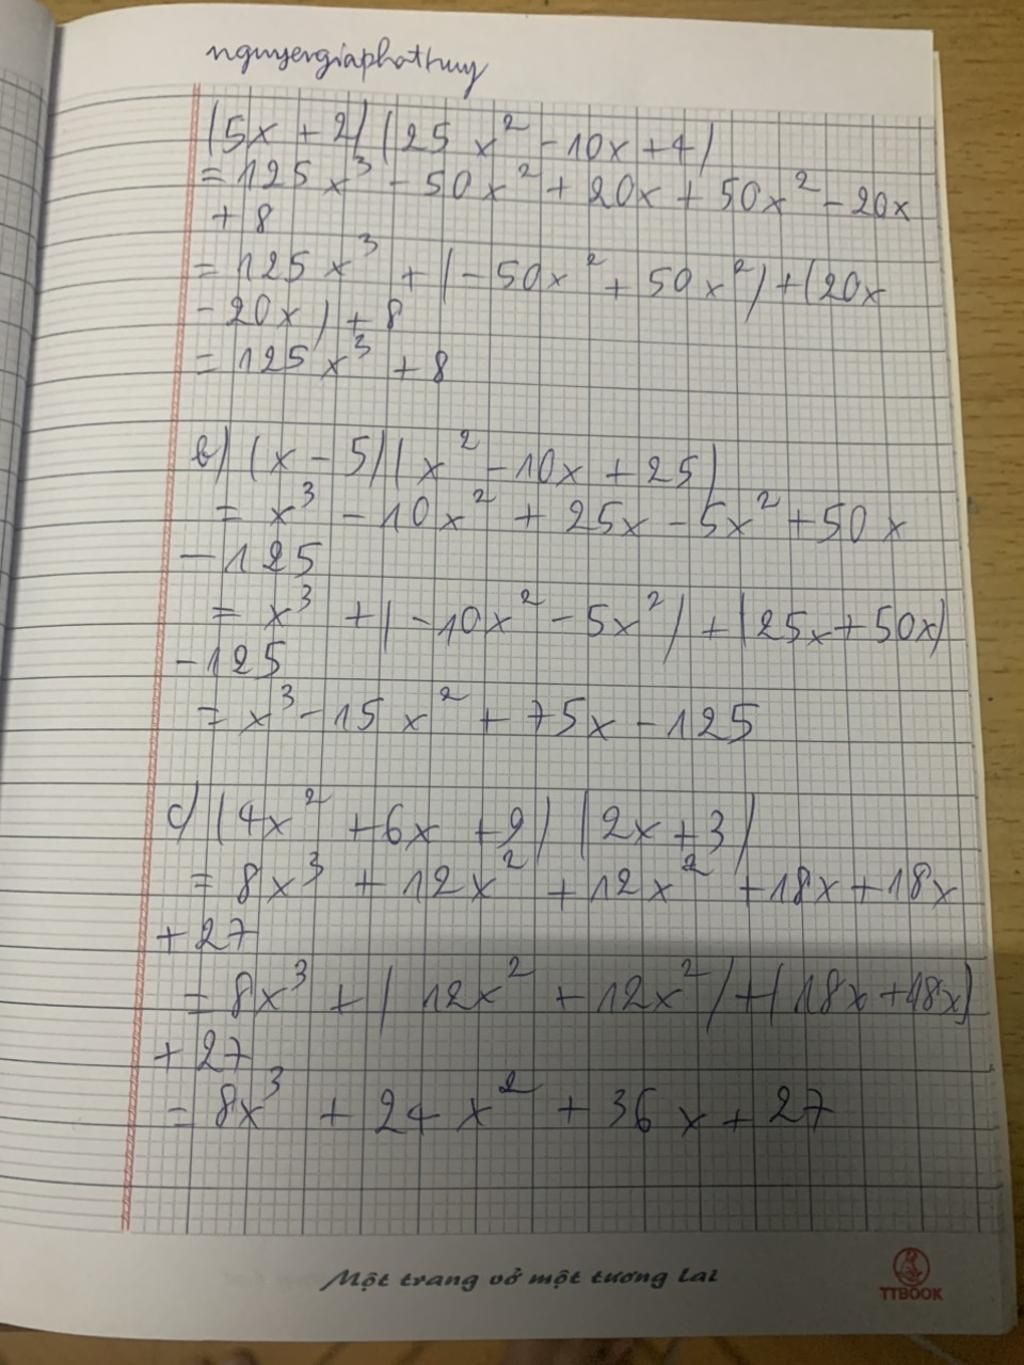 nguyengiaphathuy
(5x + 2)(25x² - 10x + 4)
= 125x³ - 50x² + 20x + 50x² - 20x
+ 8
= 125x³ + (-50x² + 50x²) + (20x
- 20x) + 8
= 125x³ + 8
b) (x - 5)(x² - 10x + 25)
= x³ - 10x² + 25x - 5x² + 50x
- 125
= x³ + (-10x² - 5x²) + (25x + 50x)
- 125
= x³ - 15x² + 75x - 125
c) (4x² + 6x + 9)(2x + 3)
= 8x³ + 12x² + 12x² + 18x + 18x
+ 27
= 8x³ + (12x² + 12x²) + (18x + 18x)
+ 27
= 8x³ + 24x² + 36x + 27
Một trang vở một tương lai
TTBOOK